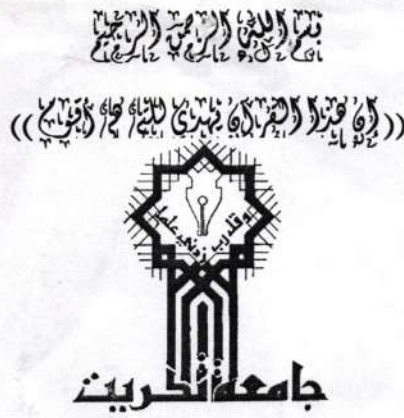 بسم الله الرحمن الرحيم
((إن هذا القرآن يهدي للتي هي أقوم))
وقل رب زدني علما
جامعة تكريت